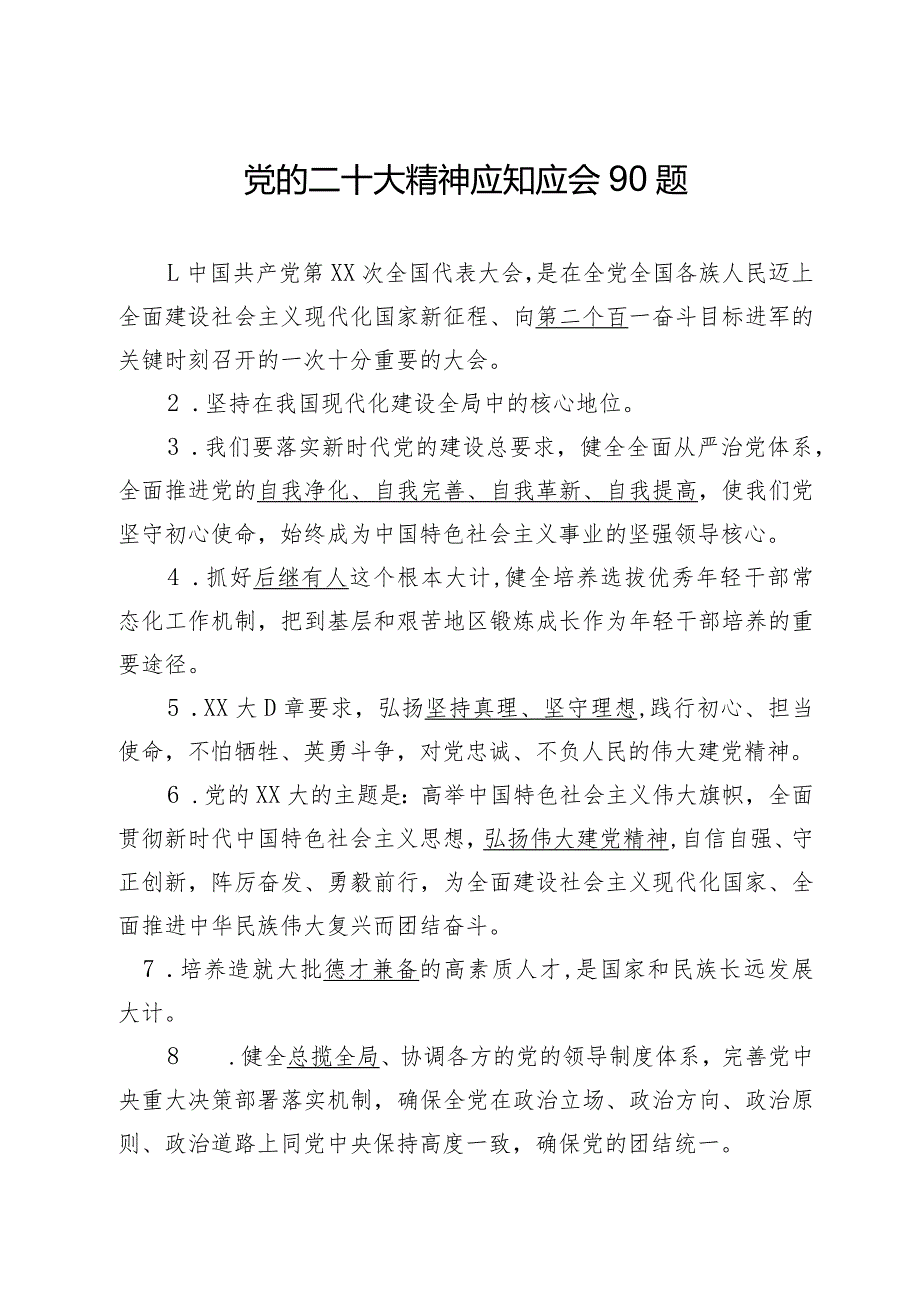 党的二十大精神应知应会 90 题
L 中国共产党第 XX 次全国代表大会,是在全党全国各族人民迈上
全面建设社会主义现代化国家新征程、向第二个百一奋斗目标进军的
关键时刻召开的一次十分重要的大会。
2 .坚持在我国现代化建设全局中的核心地位。
3 .我们要落实新时代党的建设总要求，健全全面从严治党体系，
全面推进党的自我净化、自我完善、自我革新、自我提高，使我们党
坚守初心使命，始终成为中国特色社会主义事业的坚强领导核心。
4 .抓好后继有人这个根本大计,健全培养选拔优秀年轻干部常
态化工作机制，把到基层和艰苦地区锻炼成长作为年轻干部培养的重
要途径。
5 .XX 大 D 章要求，弘扬坚持真理、坚守理想,践行初心、担当
使命，不怕牺牲、英勇斗争，对党忠诚、不负人民的伟大建党精神。
6 .党的 XX 大的主题是：高举中国特色社会主义伟大旗帜，全面
贯彻新时代中国特色社会主义思想，弘扬伟大建党精神,自信自强、守
正创新，踔厉奋发、勇毅前行，为全面建设社会主义现代化国家、全
面推进中华民族伟大复兴而团结奋斗。
7 .培养造就大批德才兼备的高素质人才,是国家和民族长远发展
大计。
8 .健全总揽全局、协调各方的党的领导制度体系，完善党中
央重大决策部署落实机制，确保全党在政治立场、政治方向、政治原
则、政治道路上同党中央保持高度一致，确保党的团结统一。